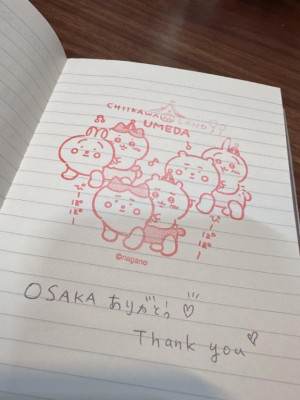 CHIIKAWA LAND
UMEDA
©nagano
OSAKA ありがとう♡
Thank you ♡